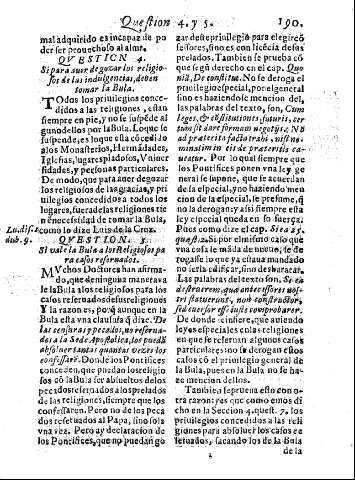 Question 4. y 5. 190.
mal adquirido es incapaz de po
der ser prouechoso al alma.
QVESTION 4.
Si para auer de gozar los religio-
sos de las indulgencias, deben
tomar la Bula.
TOdos los priuilegios conce-
didos a las religiones, estan
siempre en pie, y no se suspēde al
guno dellos por la Bula. Lo que se
suspende, es lo que esta cōcedido
a los Monasterios, Hermādades,
Iglesias, lugares piadosos, Vniuer
sidades, y personas particulares.
De modo, que para auer de gozar
los religiosos de las gracias, y pri
uilegios concedidos a todos los
lugares, fuera de las religiones tie
nē necesidad de tomar la Bula,
como lo dize Luis de la Cruz.
In. dis. 1.
dub. 9.
QVESTION. 5.
Si vale la Bula a los Religiosos pa
ra casos reseruados.
MVchos Doctores han afirma-
do, que en ninguna manera va
le la Bula a los religiosos para los
casos reseruados de sus religiones
Y la razon es, porq̄ aunque en la
Bula esta vna clausula q̄ dize. De
las censuras y pecados, no reserua-
dos a la Sede Apostolica, los puedā
absoluer tantas quantas vezes los
confessarē. Donde los Pontifices
conceden, que puedan los religio
sos cō la Bula ser absueltos de los
pecados reseruados a los prelados
de las religiones, siempre que los
confessaren. Pero no de los peca
dos reseruados al Papa, sino sola
vna vez. Pero ay declaracion de
los Pontifices, que no puedan go
zar deste priuilegio para elegir cō
fessores, sino es con licēcia de sus
prelados. Tambien se prueba co
que segū derecho en el cap. Quo
niā, De constitut. No se deroga el
priuilegio special, por el general
sino es haziendose mencion del,
las palabras del texto, son, Cum
leges, & constitutiones futuris, cer
tum sit dare formam negotijs: No
ad præterita facta trahi, nisi no-
minatim in eis de præteritis ca-
ueatur. Por lo qual siempre que
los Pontifices ponen vna ley ge
neral se supone, que se acuerdan
de la especial, y no haziendo men
cion de la especial, se presume, q̄
no la derogan: y assi siempre esta
ley especial queda en su fuerça.
Pues como dize el cap. Si ea 25.
quæst. 2. Si por el mismo caso que
vna cosa se māda de nueuo, se de
rogasse lo que ya estaua mandado
no seria edificar, sino desbaratar.
Las palabras del texto son. Si ea
destruerem, quæ antecessores nos-
tri statuerunt, non constructor,
sed euersor esse iuste comprobarer.
De donde se infiere, que auiendo
leyes especiales en las religiones
en que se reseruan algunos casos
particulares: no se derogan estos
casos cō el priuilegio general de
la Bula, pues en la Bula no se ha-
ze mencion dellos.
Tambien se prueua esto con o-
tra razon: y es que como emos di
cho en la Seccion 4. quest. 7. los
priuilegios concedidos a las reli
giones para absoluer los casos re
seruados, sacando los de la Bula
de la